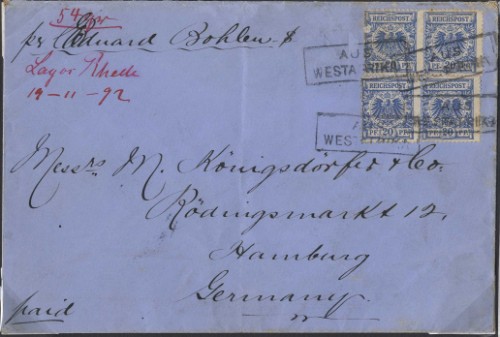 54 gr
pr Eduard Bohlen $
Lagos Rhede
19-11-92
REICHSPOST REICHSPOST
AUS
WESTAFRIKA
REICHSPOST REICHSPOST
20 20
WESTAFRIKA
Messrs M. Königsdörfer & Co.
Rödingsmarkt 12,
Hamburg
Germany.
paid